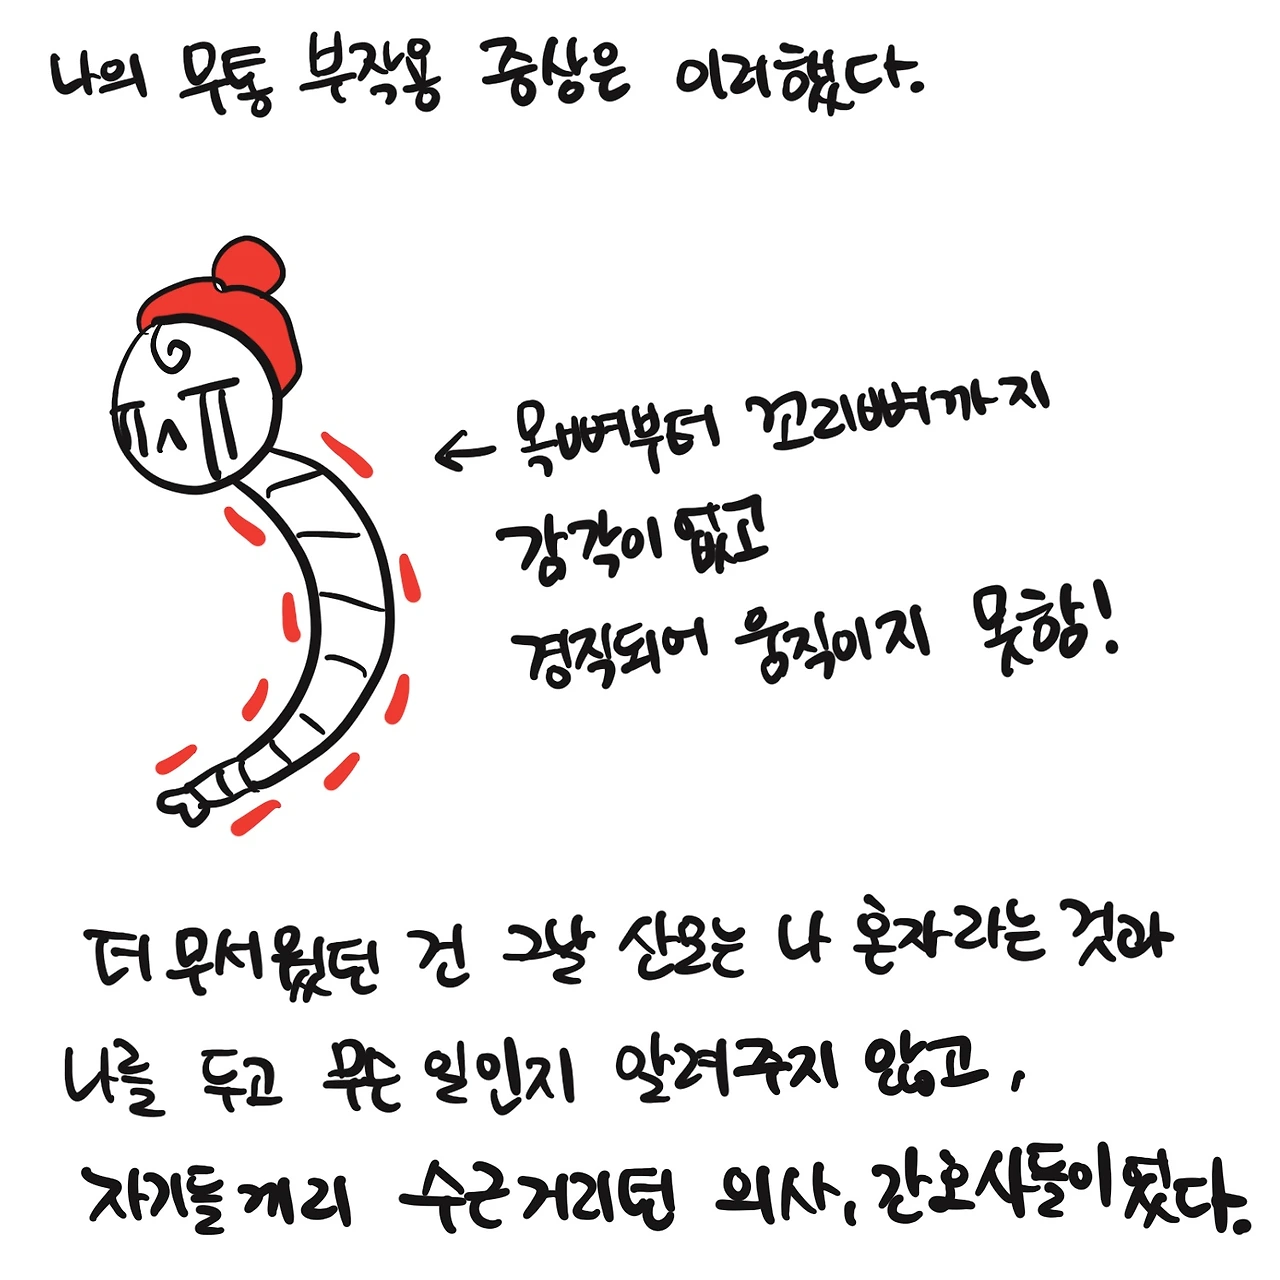 나의 무통 부작용 증상은 이러했다.
← 목뼈부터 꼬리뼈까지
감각이 없고
경직되어 움직이지 못함!
더 무서웠던 건 그날 산모는 나 혼자라는 것과
나를 두고 무슨 일인지 알려주지 않고,
자기들끼리 수근거리던 의사, 간호사들이었다.